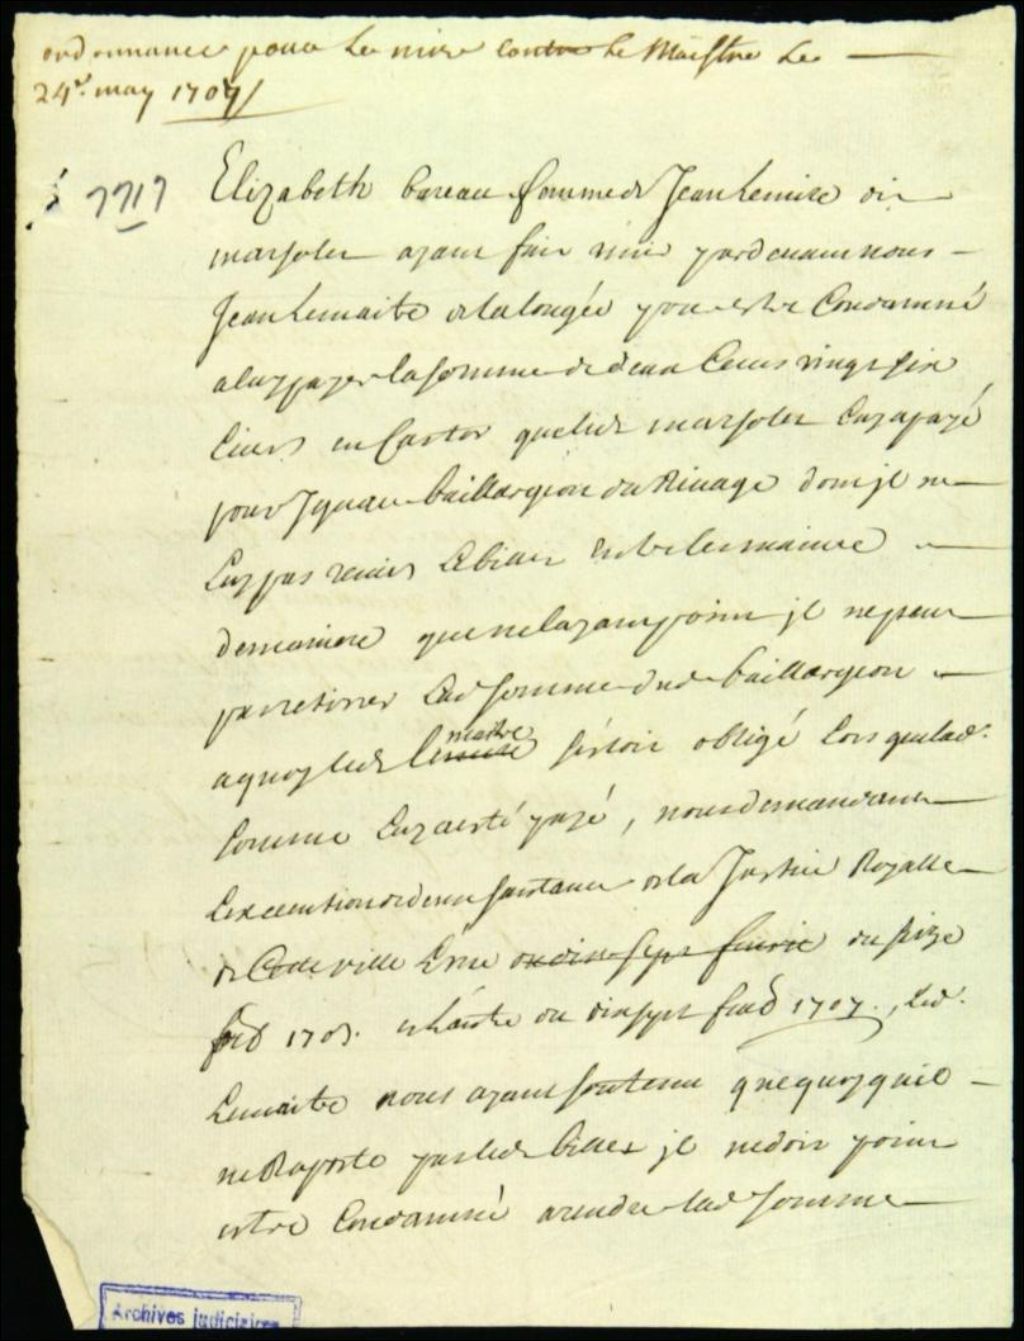 ordonnance pour Le mire contre le Maistre Le
24e. may 1707/
7717
Elizabeth bareau femme de Jean Lemire dit
marsolet ayant fait venir pardevant nous
Jean Lemaitre de la longée pour estre Condamné
a luy payer la somme de deux Cens vingt six
Livres en Castor que led marsolet Luy a payé
pour Ignace baillargeon du Rivage dont il ne
Luy pas remis Le billet entre les mains
de maniere que ne layant point il ne peut
pas retirer Lad somme dud baillargeon
a quoy led Lemaitre s'estoit obligé Lors que lad.
somme Luy a esté payé, nous demandant
L'execution de deux santance de la Justice Royalle
de Cette ville L'une du dix sept fevrier du seize
1705. et L'autre du dix sept 1707., Led.
Lemaitre nous ayant soutenu que quoy qu'il
ne Raporte pas led billet il ne doit point
estre Condamné a rendre lad somme
Archives judiciaires